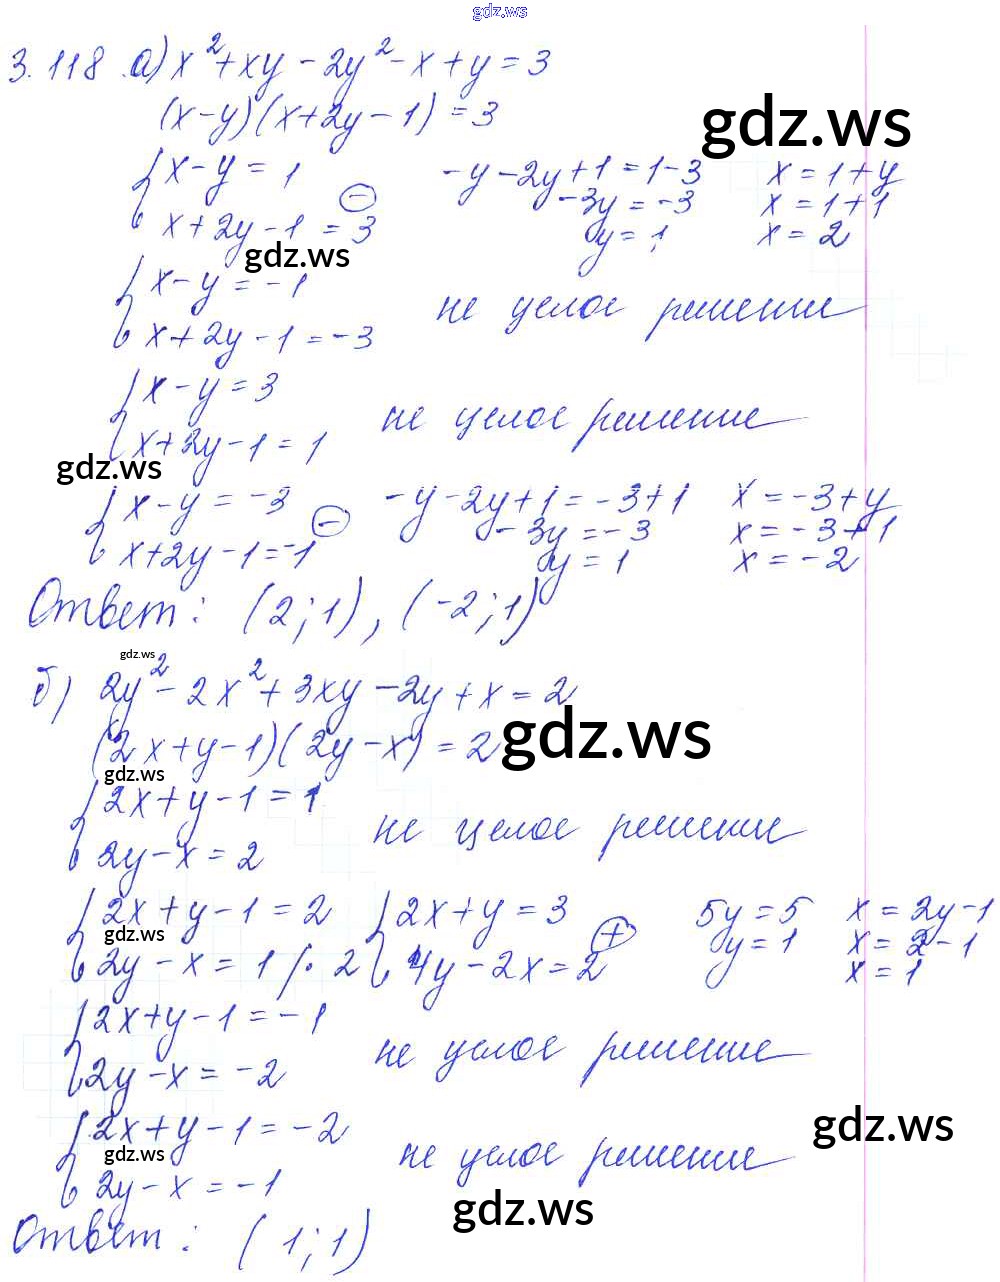 gdz.ws
3.118 а) x²+xy-2y²-x+y=3
(x-y)(x+2y-1)=3
gdz.ws
{ x-y=1
x+2y-1=3
⊖
-y-2y+1=1-3
-3y=-3
y=1
x=1+y
x=1+1
x=2
gdz.ws
{ x-y=-1
x+2y-1=-3
не целое решение
{ x-y=3
x+2y-1=1
не целое решение
gdz.ws
{ x-y=-3
x+2y-1=-1
⊖
-y-2y+1=-3+1
-3y=-3
y=1
x=-3+y
x=-3+1
x=-2
Ответ: (2;1), (-2;1)
gdz.ws
б) 2y²-2x²+3xy-2y+x=2
(2x+y-1)(2y-x)=2
gdz.ws
gdz.ws
{ 2x+y-1=1
2y-x=2
не целое решение
{ 2x+y-1=2
2y-x=1 /·2
gdz.ws
{ 2x+y=3
4y-2x=2
⊕
5y=5
y=1
x=2y-1
x=2-1
x=1
{ 2x+y-1=-1
2y-x=-2
не целое решение
gdz.ws
{ 2x+y-1=-2
2y-x=-1
не целое решение
gdz.ws
gdz.ws
Ответ: (1;1)